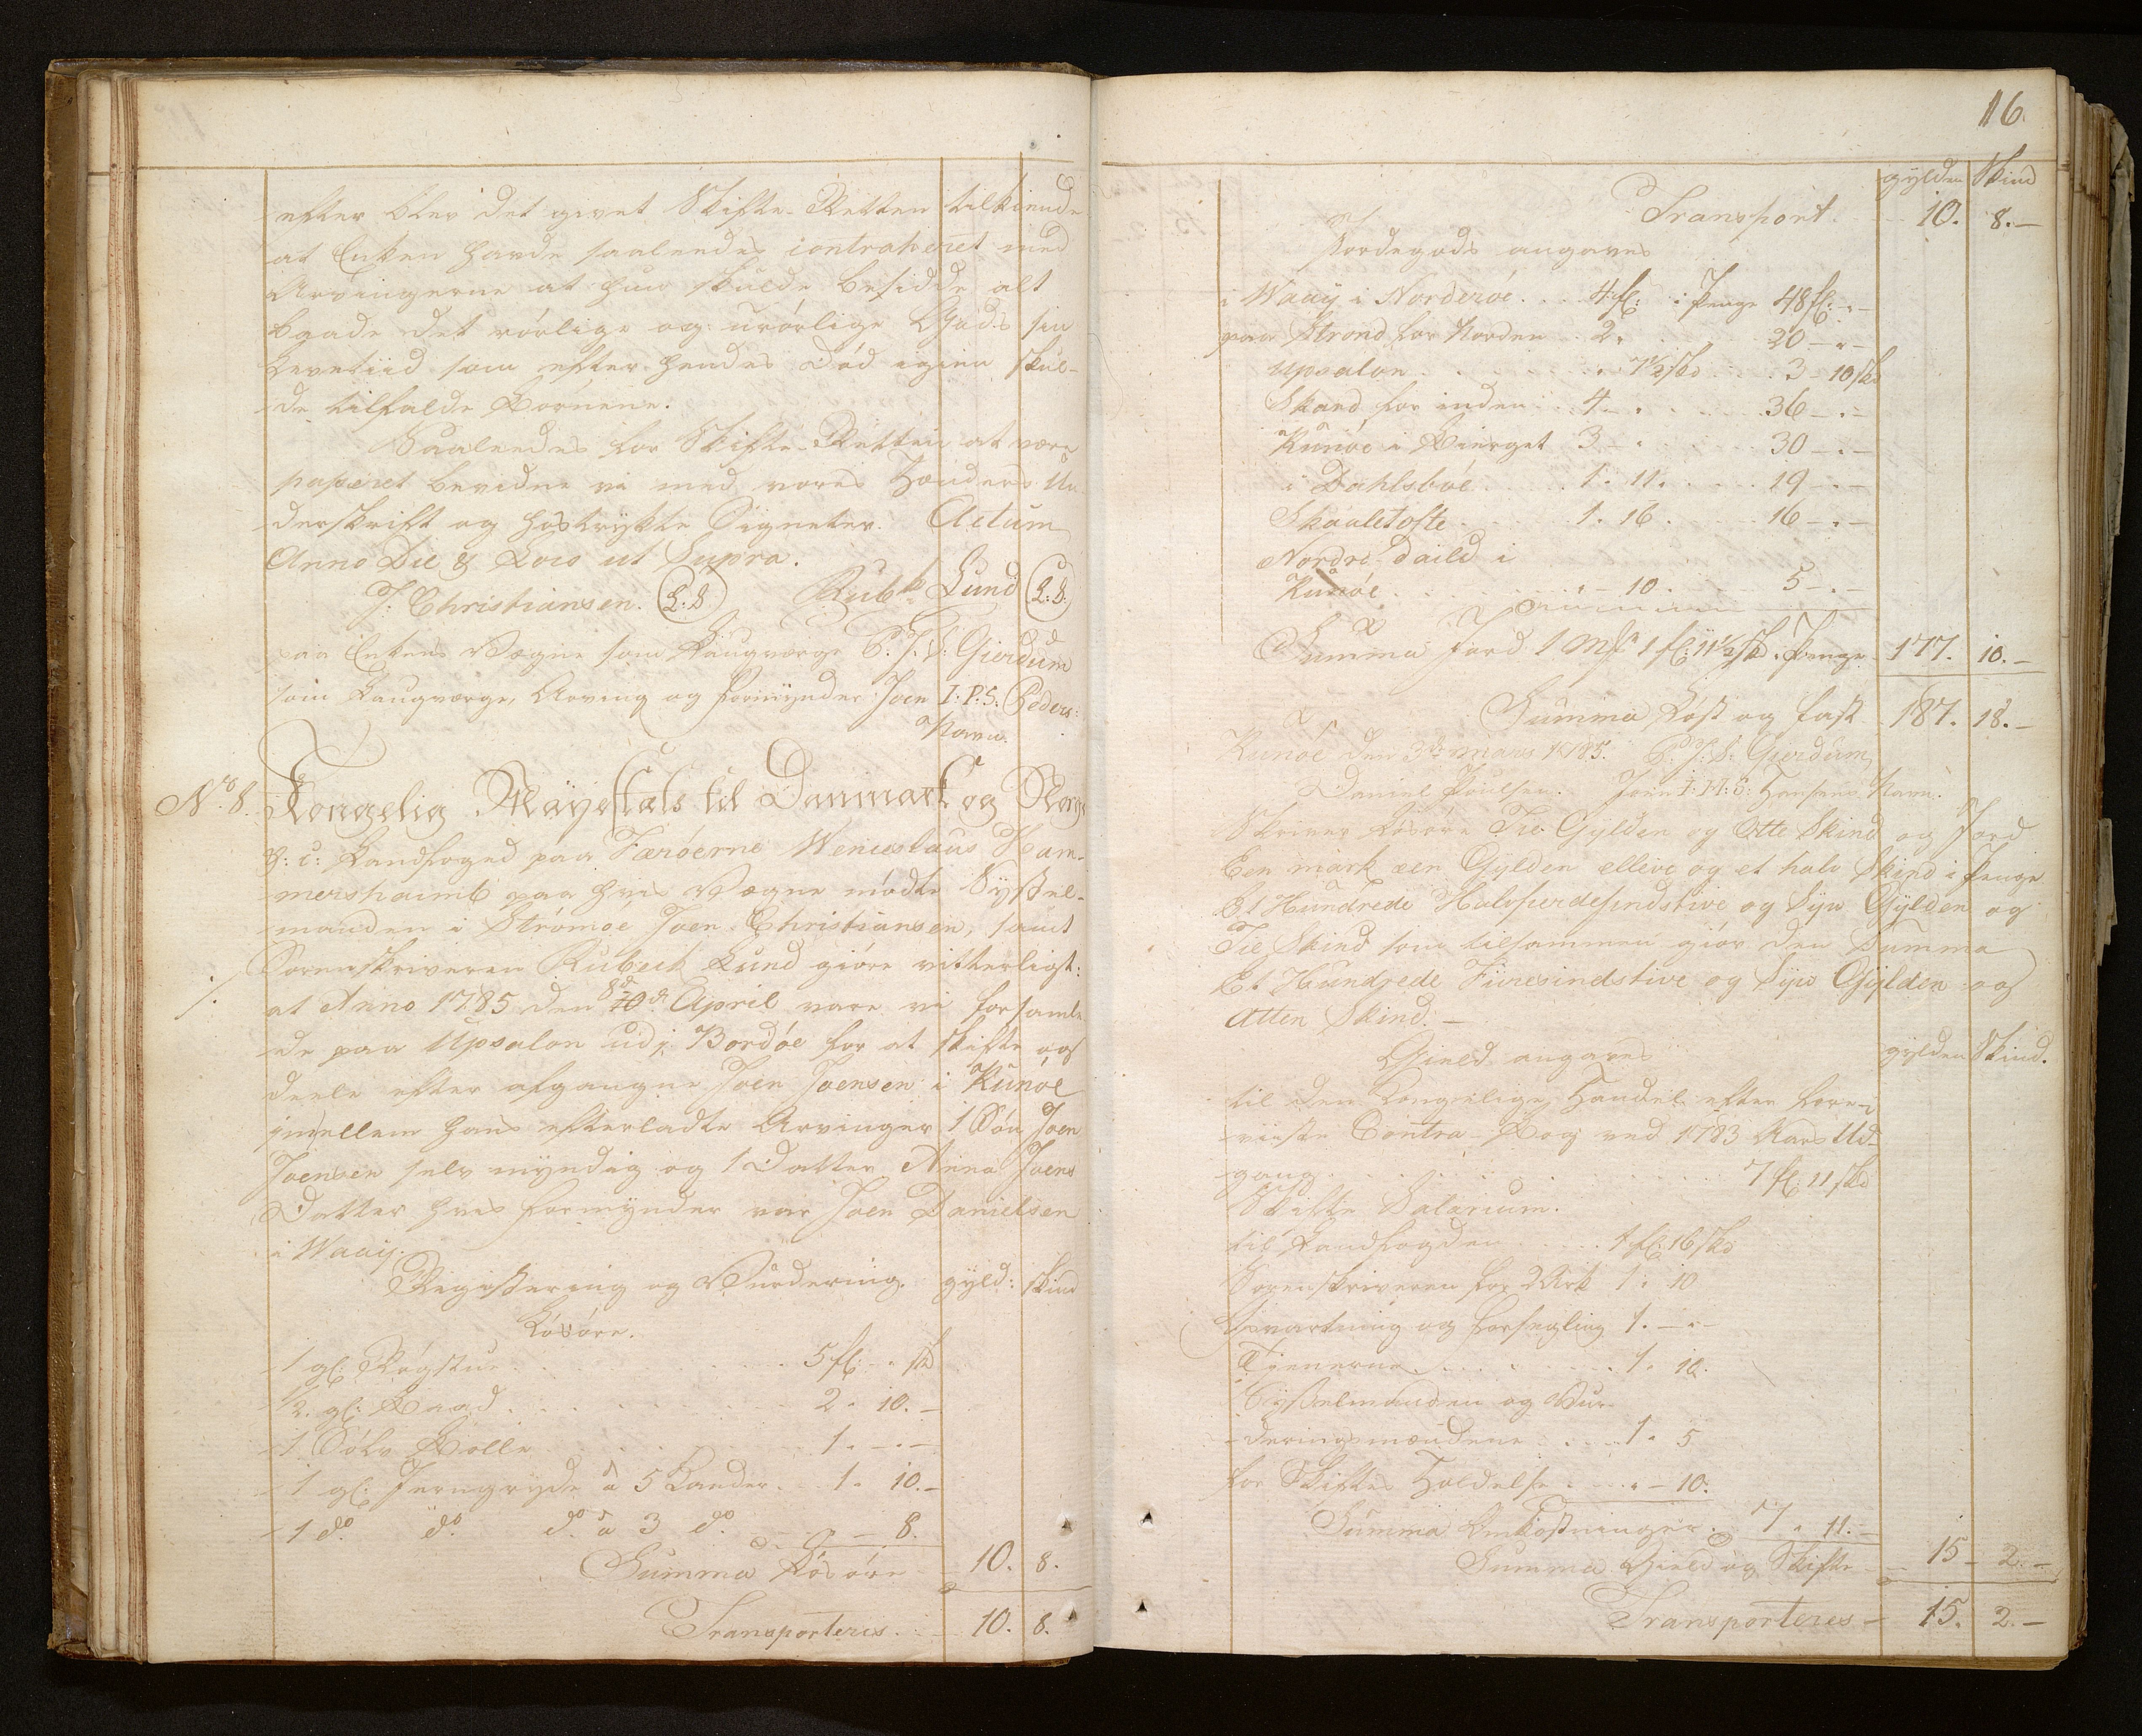 efter blev det givet Skifte-Retten tilkiende
at Enken havde saaledes contraheret med
Arvingerne at hun skulde besidde alt
baade det rörlige og urörlige Gods sin
Levetiid som efter hendes Död igien skul-
de tilfalde Börnene.
Saaledes for Skifte-Retten at være
passeret bevidne vi med vores Hænders Un-
derskrift og hostrykte Signeter. Actum
Anno Die & Loco ut Supra.
J: Christiansen. (L:S) Rub: Lund (L:S:)
paa Enkens Vegne som Laugværge P: J: S: Gierdum
som Laugværge, Arving og Formynder Joen I:P:S: Peders:
Navn.
No. 8. Kongelig Mayestæts til Danmark og Norge
&: c: Landfoged paa Færöerne Wenceslaus Ham-
mershaimb paa hvis Vegne mödte Syssel-
manden i Strömöe Joen Christiansen, samt
Sorenskriveren Rubeck Lund giöre vitterligt:
at Anno 1785 den 8de April vare vi forsamle-
de paa Upsalon udj Bordöe for at skifte og
deele efter afgangne Joen Joensen i Kunöe
imellem hans efterladte Arvinger 1 Sön Joen
Joensen selv myndig og 1 Datter Anna Joens
Datter hvis Formynder var Joen Danielsen
i Waaij.
Registering og Vurdering. gyld: skind
Lösöre.
1 gl: Rögstue . . . 5 fl: - " sk
1/2. gl: Baad . . . 2 " 10. -
1 Sölv Bolle . . . 1 " - " -
1 gl: Jerngryde à 5 Kander . 1 " 10. -
1 do. do. do. à 3 do. . . " - 8.
Summa Lösöre 10. 8.
Transporteres . . 10. 8.
116.
gylden Skind
Transport . 10. 8. -
Jordegods angaves
i Waaij i Norderöe . . 4 fl: i Penge 48 fl: " -
paa Strond for Norden . 2 " . . 20 - " -
Upsalon . . . " 7 1/2 skd . . 3 - 10 skd
Skaard for inden . . 4 - " . . 36 - " -
Kunöe i Bierget 3 - " . . 30 - " -
i Dahlsböe . . 1 " 11 . . 19 - " -
Skaaletofte . . 1 " 16 . . 16 - " -
Nordre Daild i
Kunöe . . . " - 10 . . 5 - " -
Summa Jord 1 Mk 1 fl: 11 1/2 sk i Penge 177. 10. -
Summa Löst og fast 187. 18. -
Kunöe den 3de Mars 1785. P: J: S: Gierdum
Daniel Poulsen. Joen I: H: S: Hansens Navn.
Skriver Lösöre Tie Gylden og Otte Skind og Jord
Een mark een Gylden elleve og et halv Skind i Penge
Et Hundrede Halvfierdesindstive og Syv Gylden og
Tie Skind som tilsammen giör den Summa
Et Hundrede Fiiresindstive og Syv Gylden og
Atten Skind. -
Gield angaves gylden Skind.
til den Kongelige Handel efter fore-
viiste Contra-Bog ved 1783 Aars Ud-
gang . . . 7 fl: 11 skd
Skifte Salarium.
til Landfogden . . . 1 fl: 16 skd
Sorenskriveren for 2 Ark 1 " 10
Opvartning og Forsegling 1. - " -
Tienerne . . . 1 " 10.
Sysselmanden og Vur-
deringsmændene . . . 1 " 5
for Skiftes Holdelse . . " - 10.
Summa Omkostninger. 7 " 11. -
Summa Gield og Skifte - 15 - 2. -
Transporteres - 15. 2. -